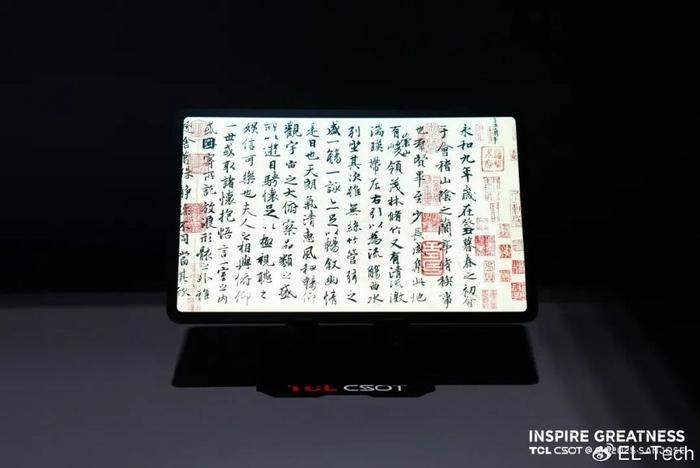 永和九年歲在癸丑暮春之初會
于會稽山陰之蘭亭脩稧事
也羣賢畢至少長咸集此地
崇山
有峻領茂林脩竹又有清流激
湍暎帶左右引以為流觴曲水
列坐其次雖無絲竹管弦之
盛一觴一詠亦足以暢敘幽情
是日也天朗氣清惠風和暢仰
觀宇宙之大俯察品類之盛
所以遊目騁懷足以極視聽之
娛信可樂也夫人之相與俯仰
一世或取諸懷抱悟言一室之內
或因寄所託放浪形骸之外雖
靜不同當其欣
TCL CSOT
INSPIRE GREATNESS
TCL CSOT @ 2025 SAN JOSE
EL-Tech